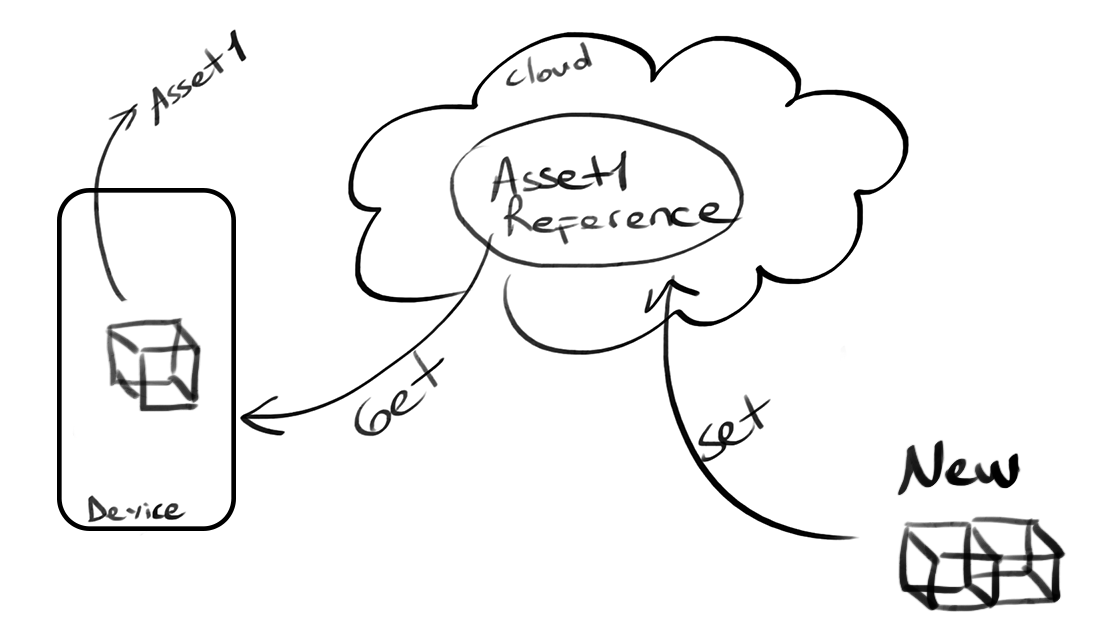 Asset1
cloud
Asset1
Reference
Get
set
New
Device